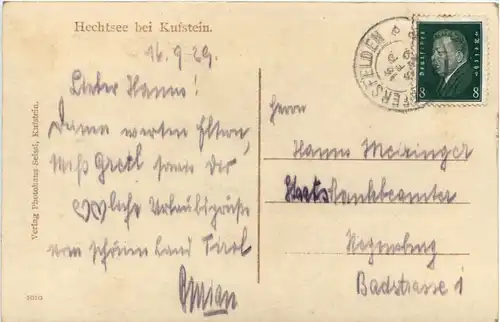 Hechtsee bei Kufstein.
16.9.29.
Lieber Hanns!
Deinen werten Eltern,
Miß Gretl sowie Dir
♡♡liche Urlaubsgrüße
vom schönen Land Tirol
Verlag Photohaus Seisel, Kufstein.
Deutsches Reich
8 8
Herrn
Hanns Meiringer
Staatsbankbeamter
Regensburg
Badstrasse 1